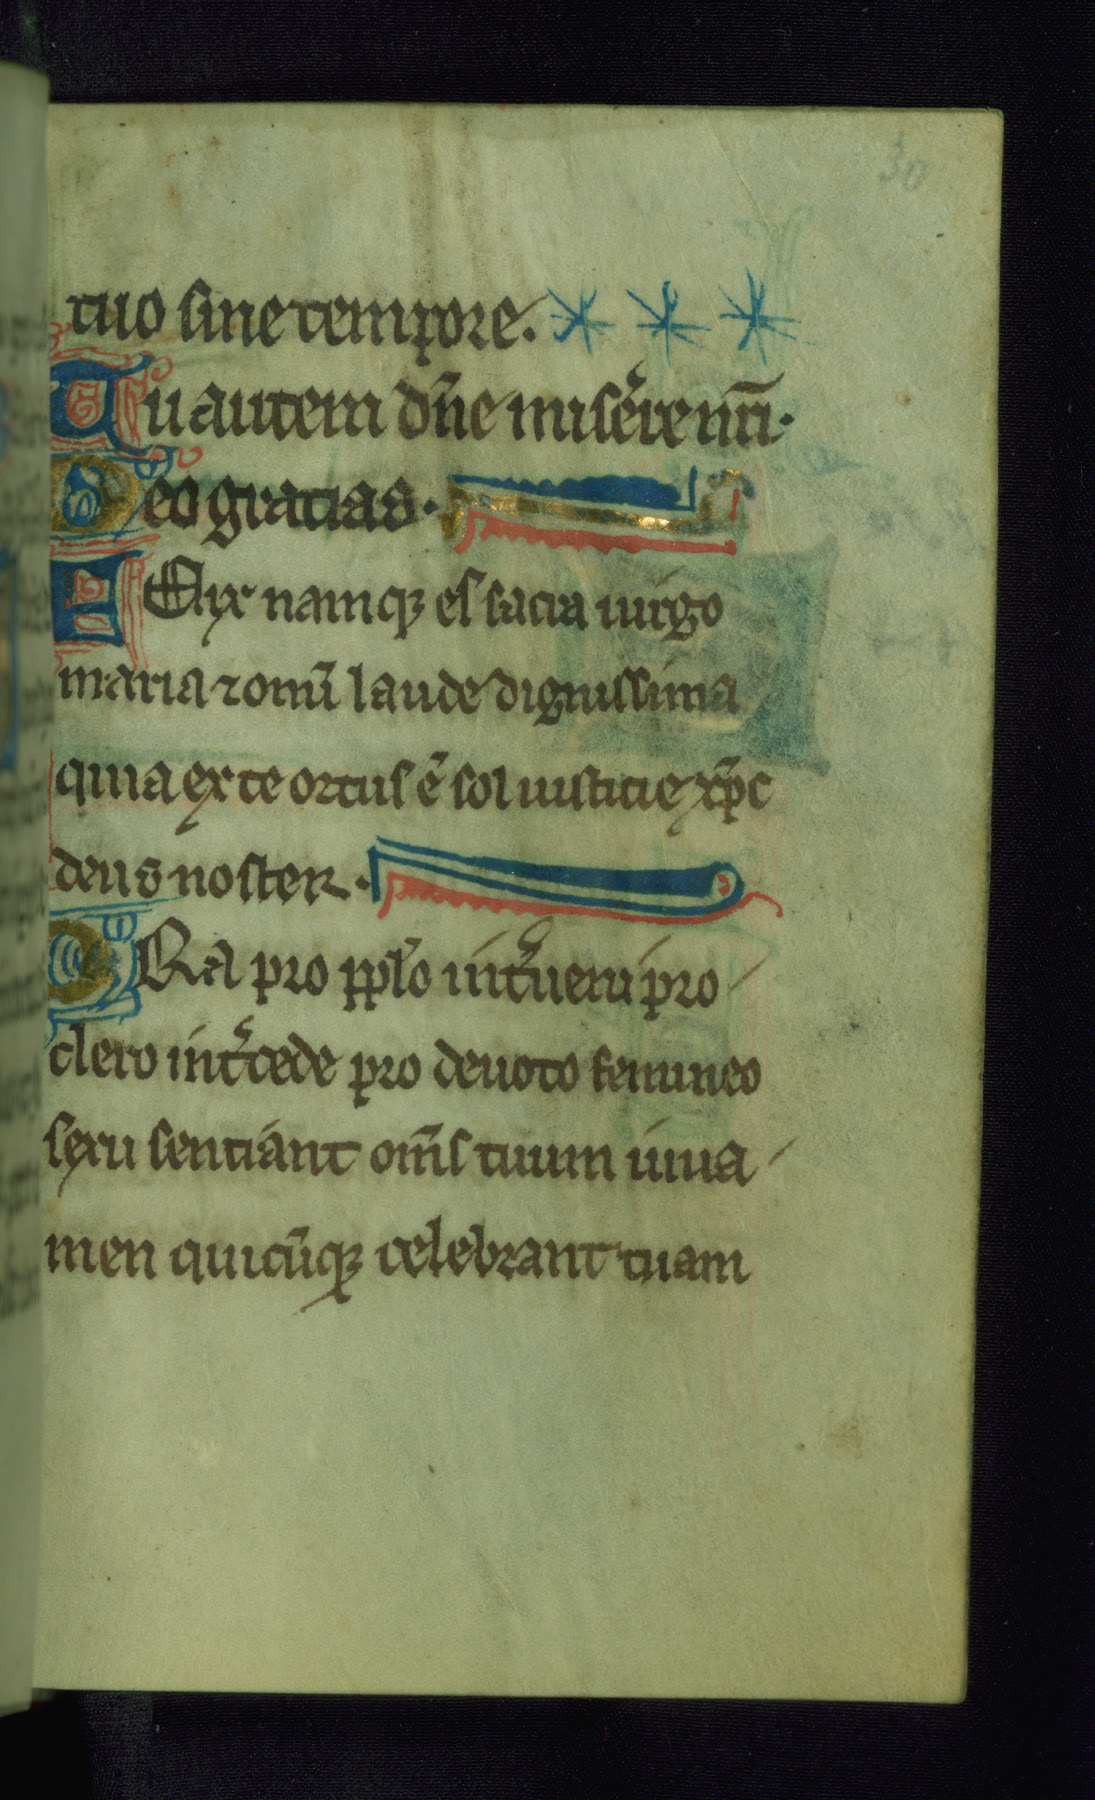 30
tuo sine tempore.
Tu autem dn̄e misere nr̄i.
Deo gracias.
FElix namq; es sacra uirgo
maria ⁊ omī laude dignissima
quia ex te ortus ē sol iusticie xp̄c
deus noster.
ORa pro pplo int̄ueni pro
clero int̄cede pro deuoto femineo
sexu sentiant om̄s tuum iuua
men quicūq; celebrant tuam